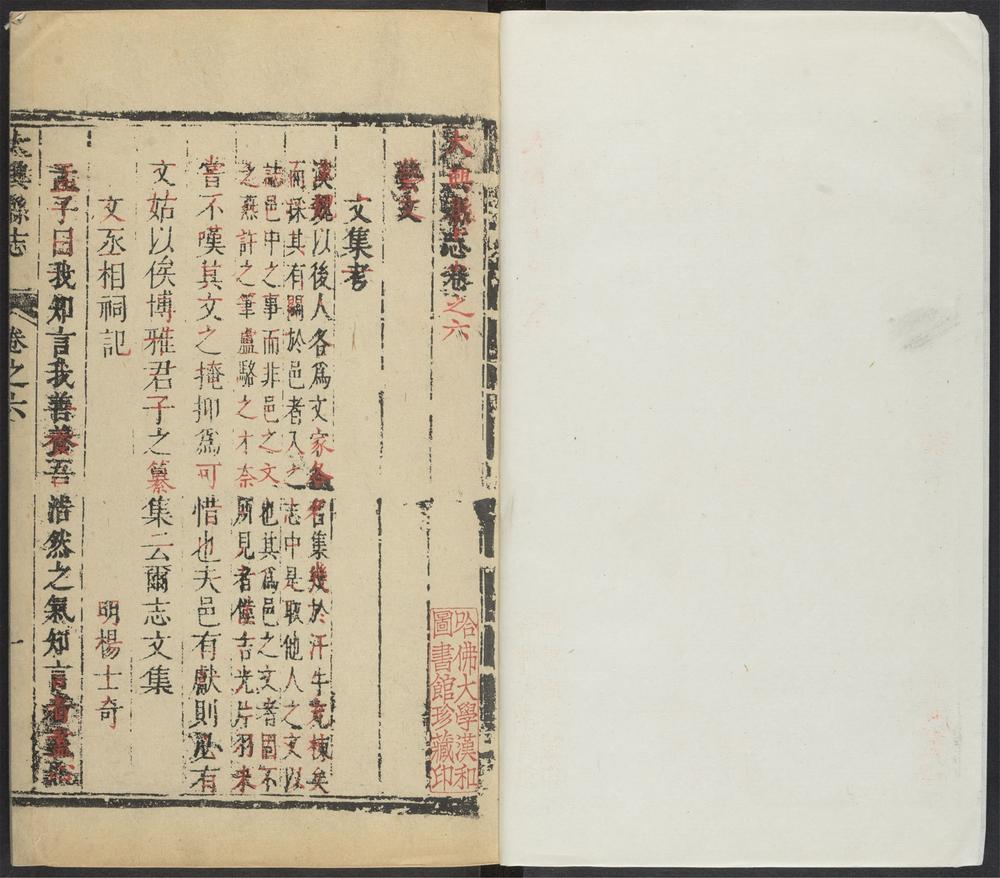 大興縣志卷之六
藝文
文集考
漢魏以後人各爲文家各名集幾於汗牛充棟矣
而採其有關於邑者入之志中是取他人之文以
誌邑中之事而非邑之文也其爲邑之文者固不
之燕許之筆盧駱之才奈所見者僅吉光片羽未
嘗不嘆其文之掩抑爲可惜也夫邑有獻則必有
文姑以俟博雅君子之纂集云爾志文集
文丞相祠記 明楊士奇
孟子曰我知言我善養吾浩然之氣知言者盡
大興縣志 卷之六 一
哈佛大學漢和
圖書館珍藏印